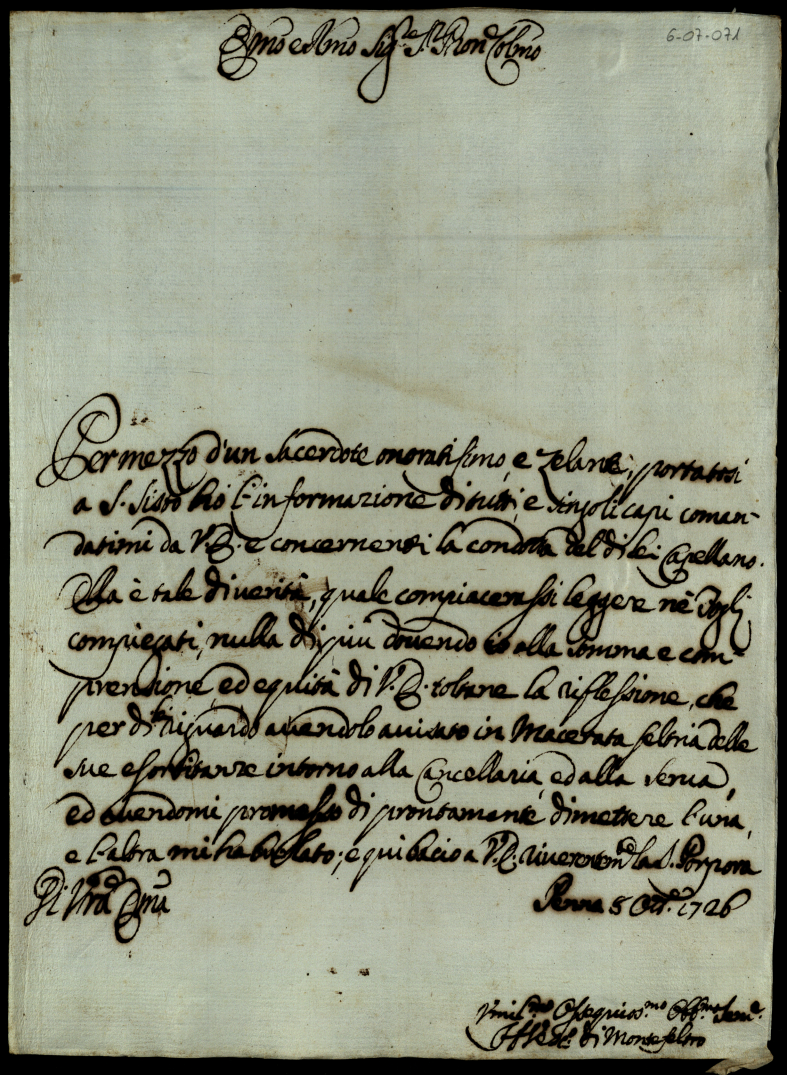 6-07-071
Emo e Rmo Sig.re Sr. Pron Colmo
Per mezzo d'un Sacerdote onoratissimo, e zelante, portatosi
a S. Sisto hò l'informazione di tutti, e singoli capi coman-
datimi da V.E. e concernenti la condotta del di lei Capellano.
Ella è tale di verità, quale compiacerassi leggere nè fogli
compiegati, nulla di più dovendo io alla somma e com-
prensione, ed equità di V.E. toltane la riflessione, che
per di riguardo avendolo avisato in Macerata feltria delle
sue esorbitanze intorno alla Cancellaria, ed alla serva,
ed avendomi promesso di prontamente dimettere l'una,
e l'altra mi ha burlato; e qui bacio a V.E. riverentem.te la S. Porpora
Di Vra Ema
Penna 8 Ott. 1726
Umil.mo Ossequios.mo Obb.mo Serv.e
di Montefeltro